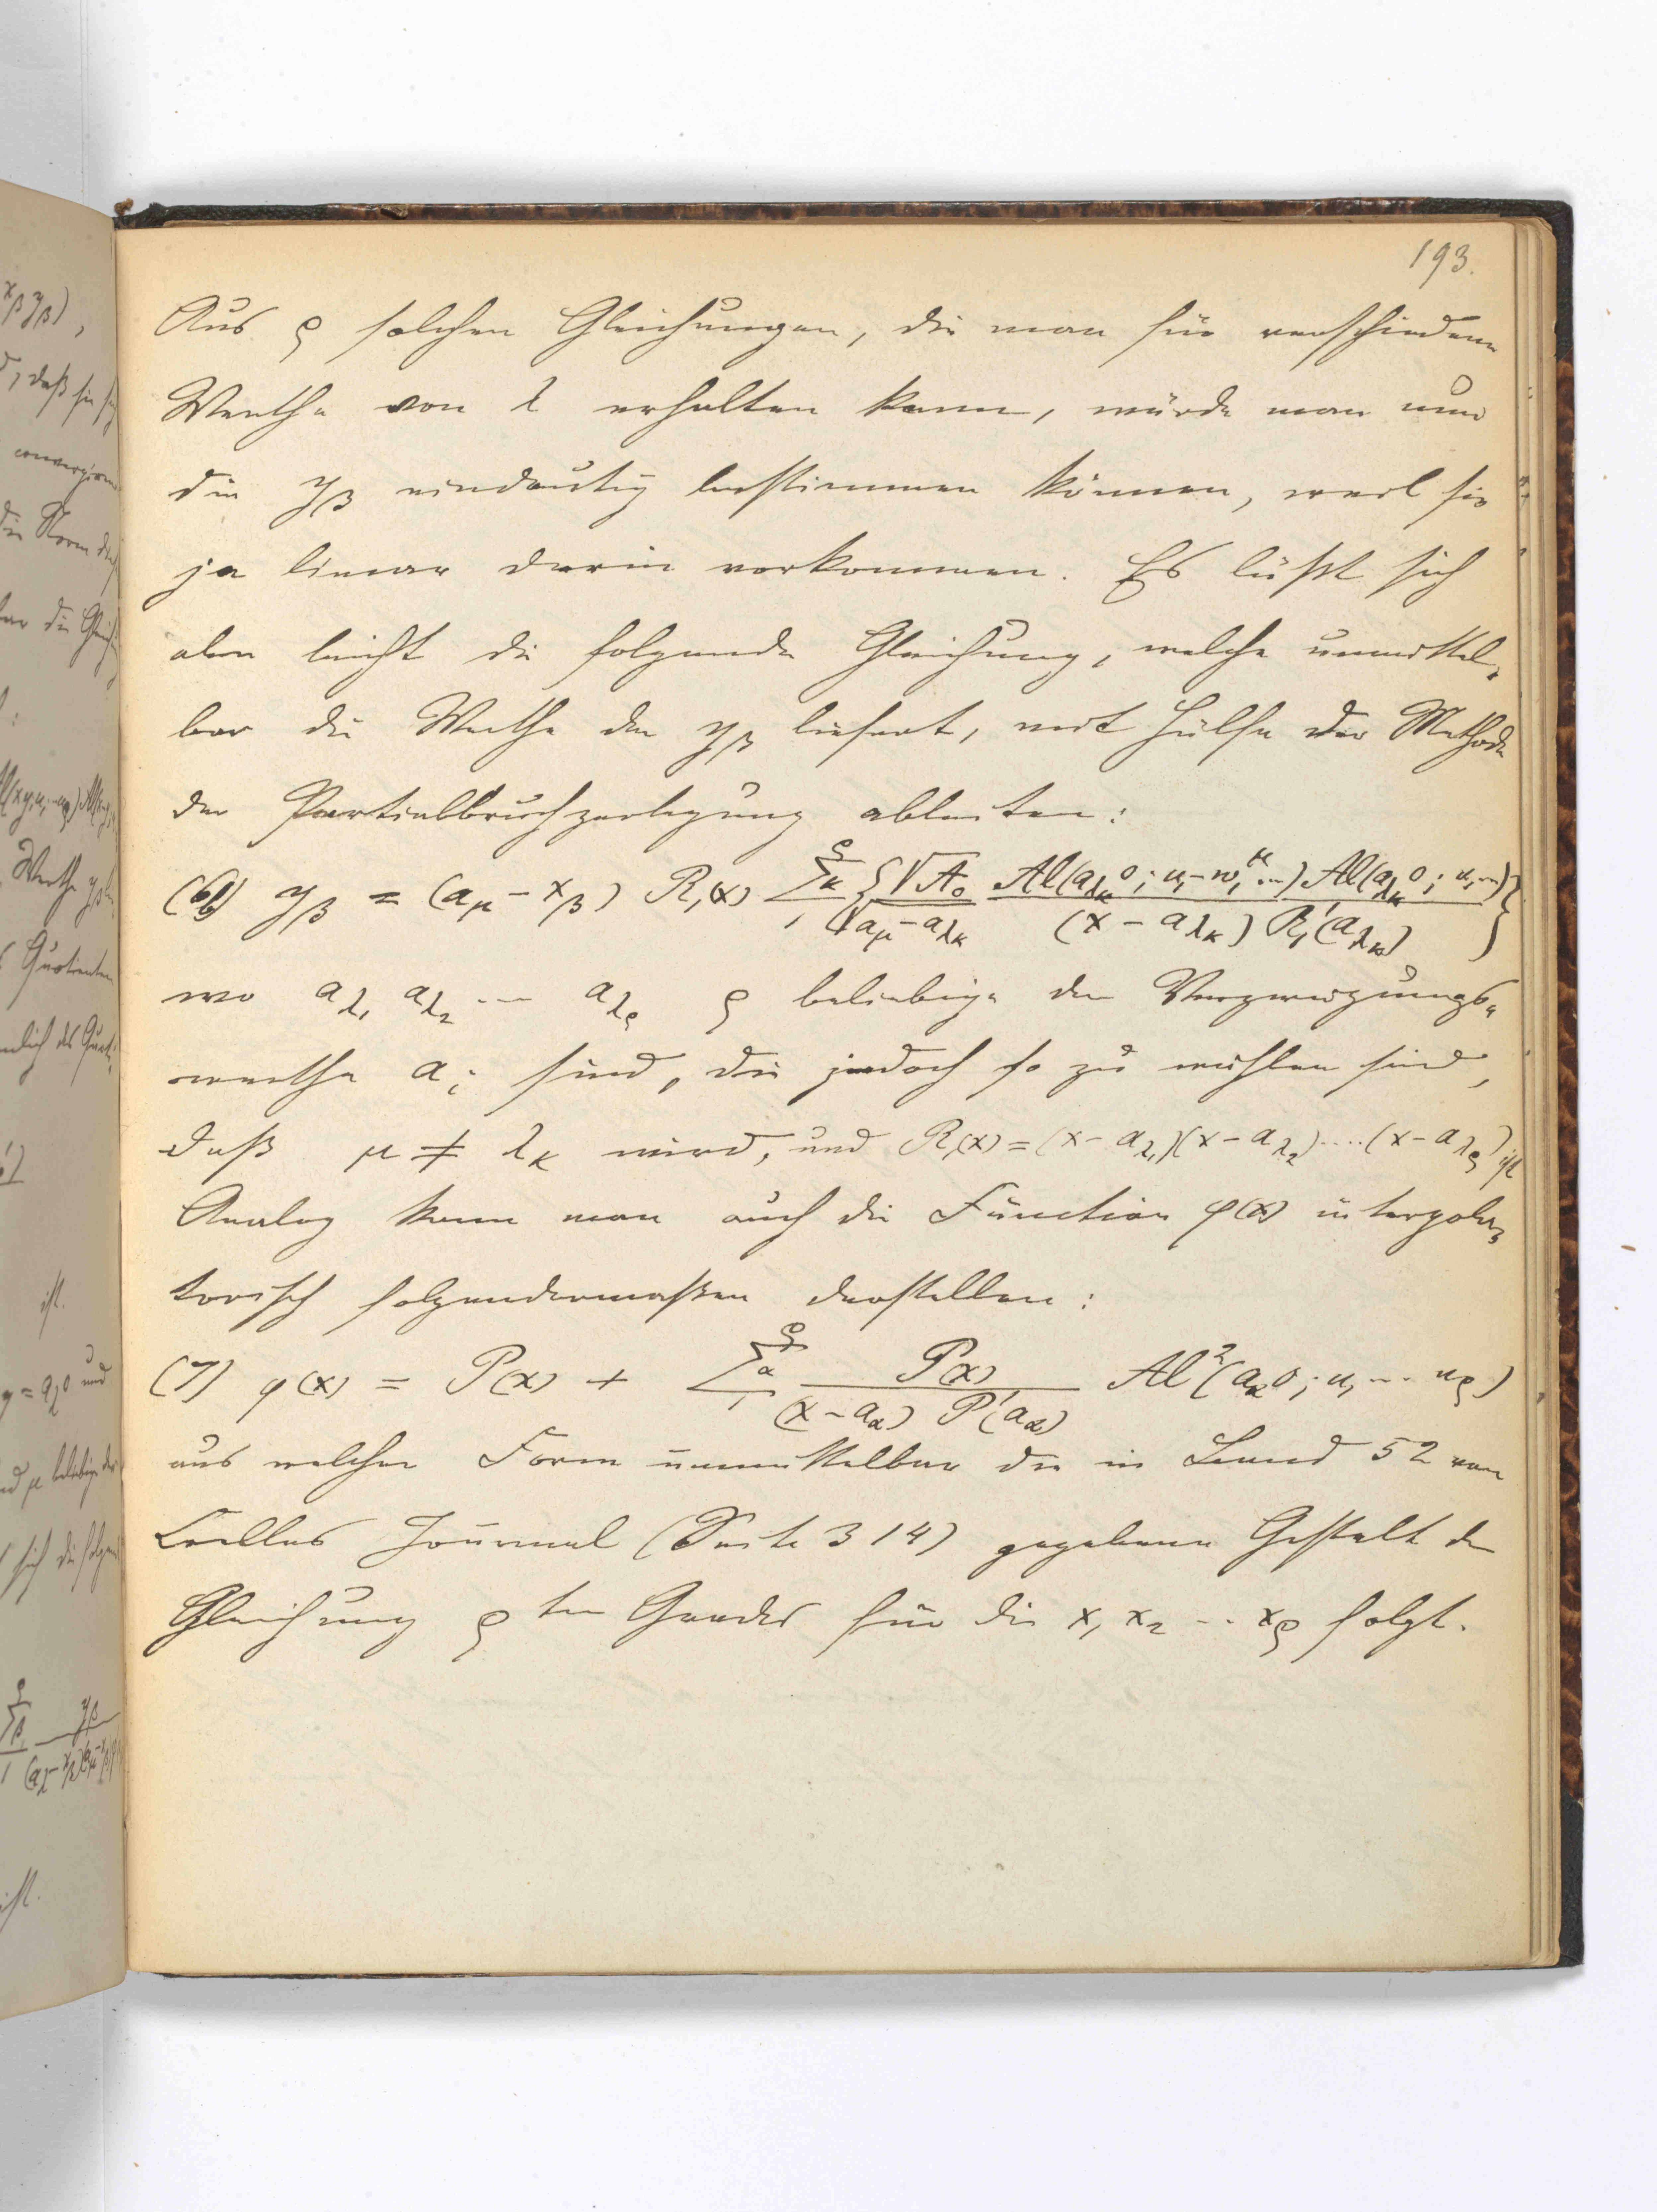 193.
Aus ρ solchen Gleichungen, die man für verschiedene
Werthe von λ erhalten kann, würde man nun
die y_β eindeutig bestimmen können, weil sie
ja linear darin vorkommen. Es läßt sich
aber leicht die folgende Gleichung, welche unmittel-
bar die Werthe der y_β liefert, mit Hülfe der Methode
der Partialbruchzerlegung ableiten:
(6b) y_β = (a_μ - x_β) R_1(x) Σ_κ^ρ_1 { √A_0 / √(a_μ - a_λκ) · Al(a_λκ 0; u_1 - w_1^μ …) Al(a_λκ 0; u_1 …) / (x - a_λκ) R_1'(a_λκ) }
wo a_λ1 a_λ2 … a_λρ ρ beliebige der Verzweigungs-
werthe a_i sind, die jedoch so zu wählen sind,
daß μ ≠ λ_κ wird, und R_1(x) = (x - a_λ1)(x - a_λ2) .... (x - a_λρ) ist
Analog kann man auch die Function φ(x) interpola-
torisch folgendermaßen darstellen:
(7) φ(x) = P(x) + Σ_α^ρ_1 P(x) / (x - a_α) P'(a_α) Al²(a_α 0; u_1 … u_ρ)
aus welcher Form unmittelbar die in Band 52 von
Crelles Journal (Seite 314) gegebene Gestalt der
Gleichung ρ ten Grades für die x_1 x_2 … x_ρ folgt.
x_β y_β),
daß sie sich
die Norm
Quotienten
ist.
y = a_λ 0 und
Σ_β^ρ_1 y_β
ist.